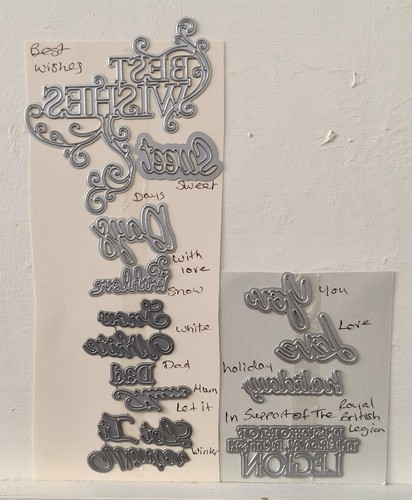 Best
wishes
BEST
WISHES
Sweet
Sweet
Days
Days
with
love
with love
Snow
Snow
white
White
Dad
Dad
Mum
Let it
Let It
Winter
You
You
Love
Love
holiday
holiday
In Support of The Royal
British
Legion
IN SUPPORT OF
THE ROYAL BRITISH
LEGION